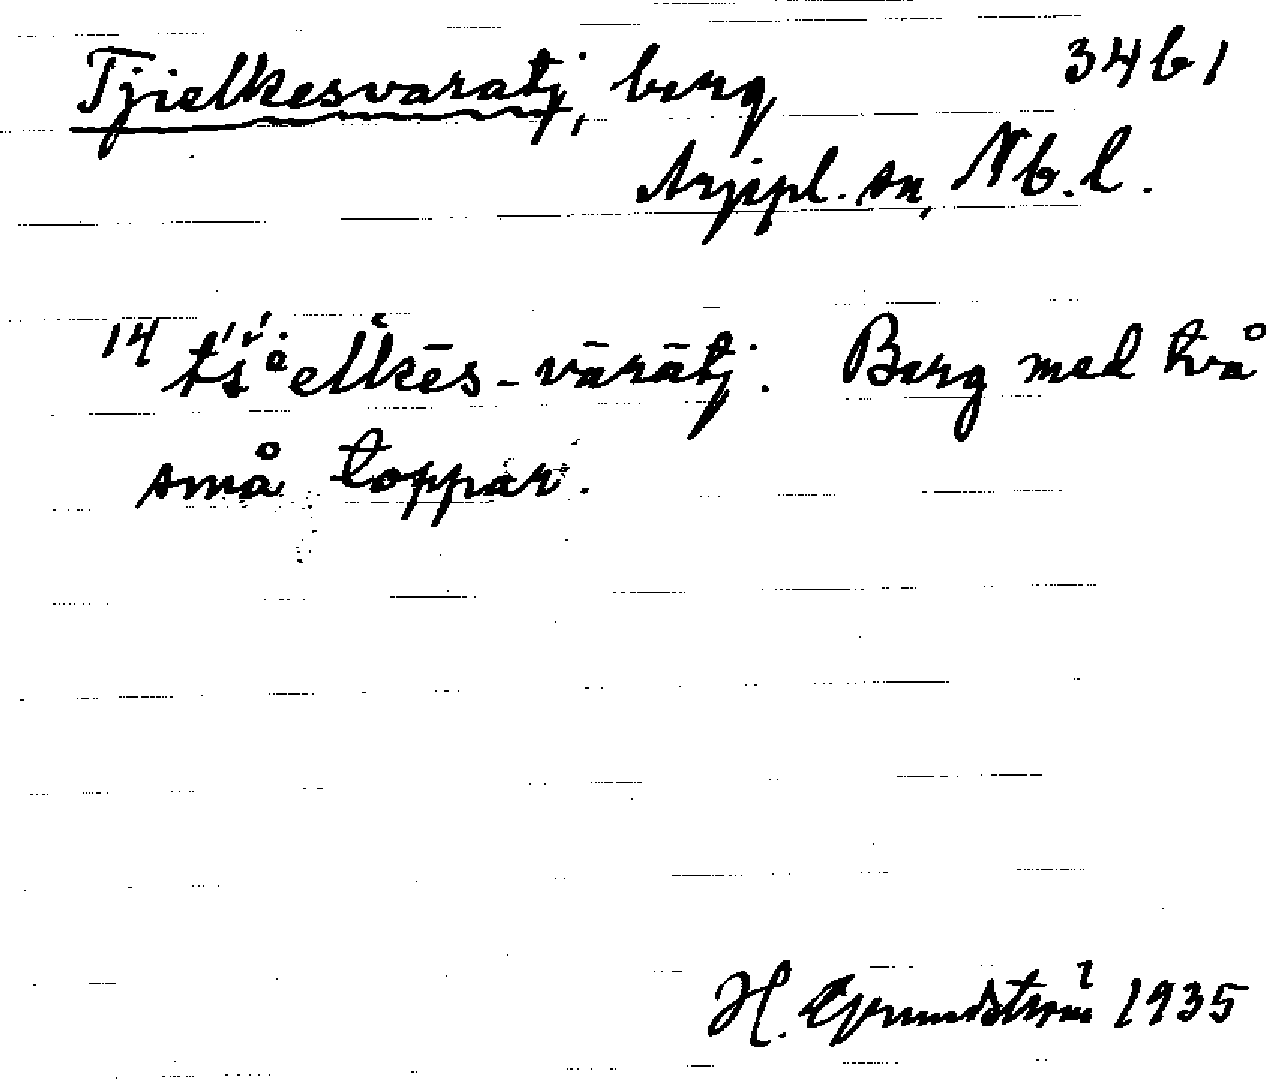 Tjielkesvaratj, berg 3461
Arjepl. sn, Nb. l.
14 tš́ i̯elkēs-vārātj. Berg med två
små toppar.
H. Grundström 1935